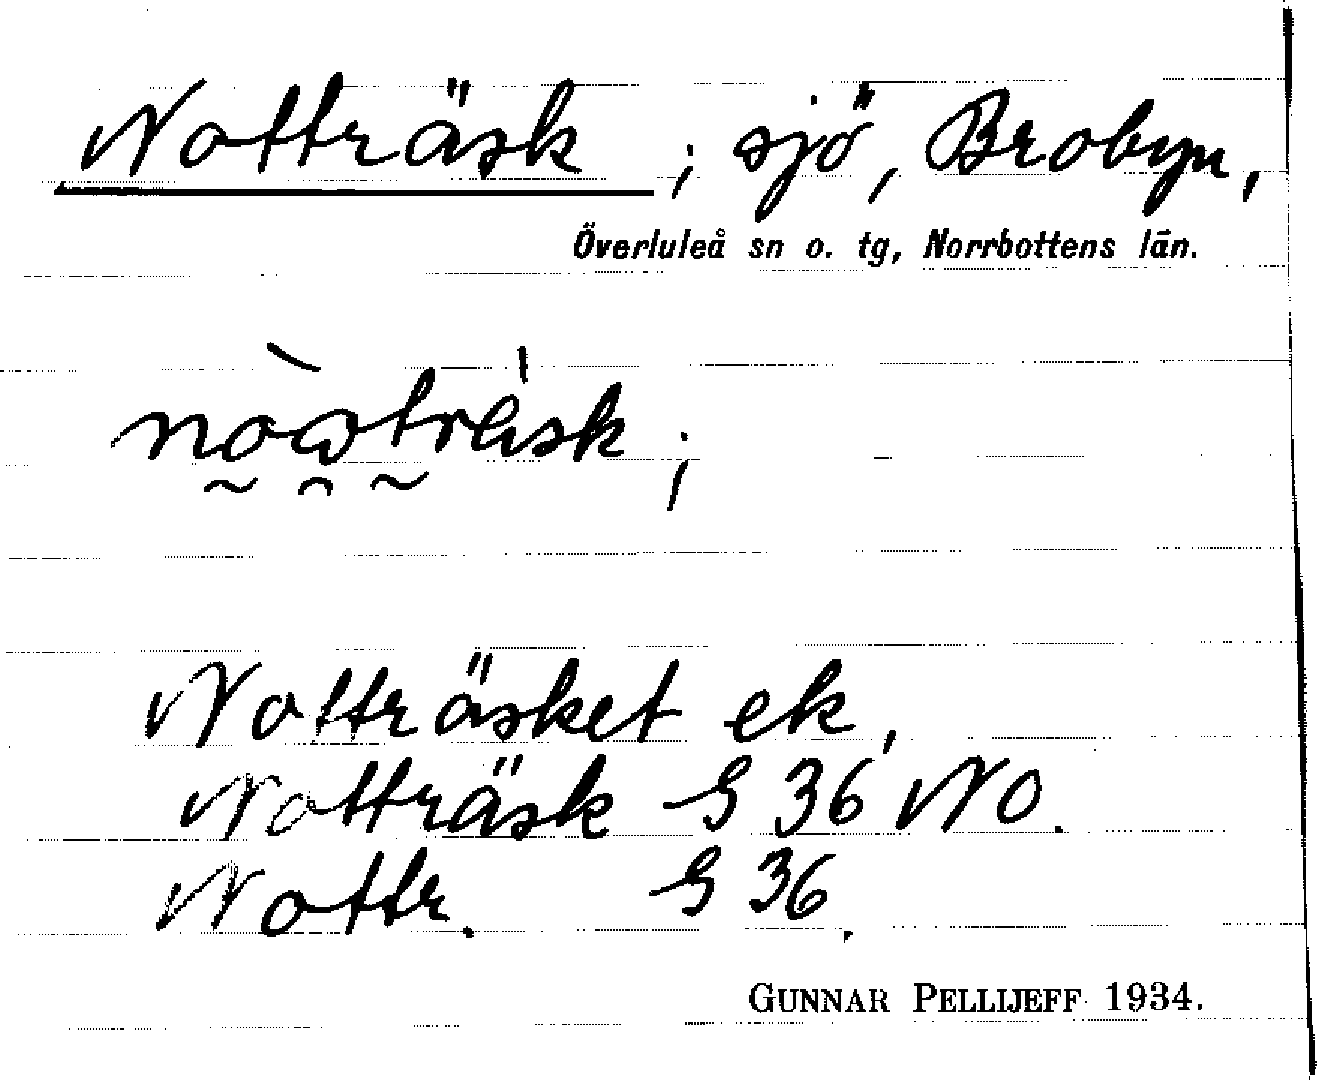 Notträsk ; sjö, Brobyn,
Överluleå sn o. tg, Norrbottens län.
Notträsket ek,
Notträsk G 36 NO.
Nottr. G 36.
GUNNAR PELLIJEFF 1934.